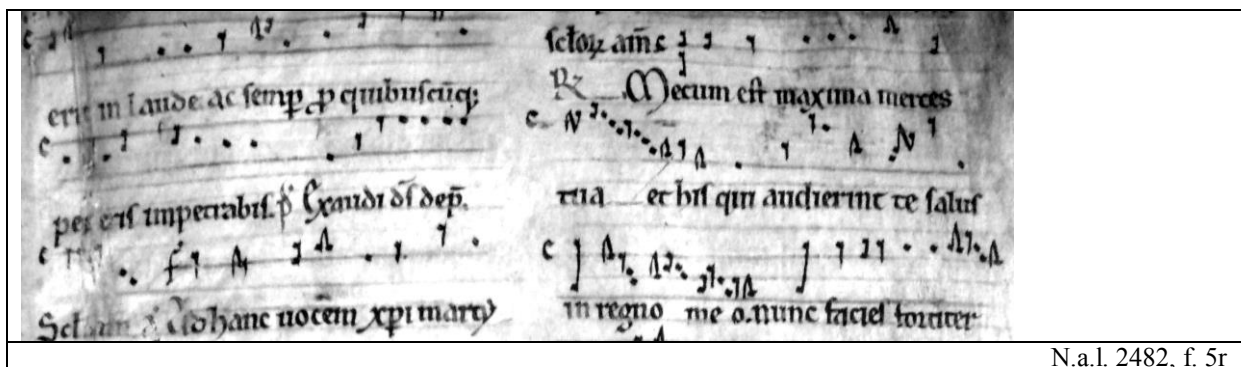 erit in laude. ac semp ꝓ quibuscūq;
impetrabis. Exaudi ds dep̄.
hanc uocēm xpi marty
scloꝝ am̄
℞ Mecum est maxima merces
tua et his qui audierint te salus
in regno me o. nunc faciet fortiter
N.a.l. 2482, f. 5r